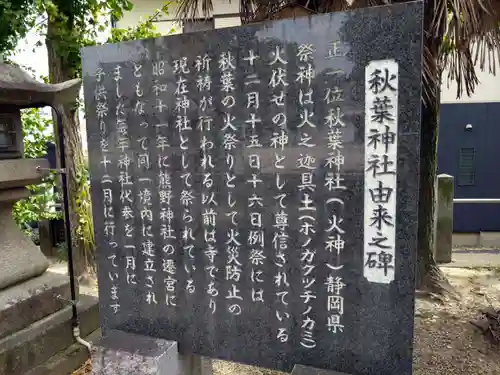 秋葉神社由来之碑
正一位秋葉神社(火神)静岡県
祭神は火之迦具土(ホノカグツチノカミ)
火伏せの神として尊信されている
十二月十五日十六日例祭には
秋葉の火祭りとして火災防止の
祈祷が行われる以前は寺であり
現在神社として祭られている
昭和十一年に熊野神社の遷宮に
ともなって同一境内に建立され
ました毎年神社代参を一月に
子供祭りを十二月に行っています